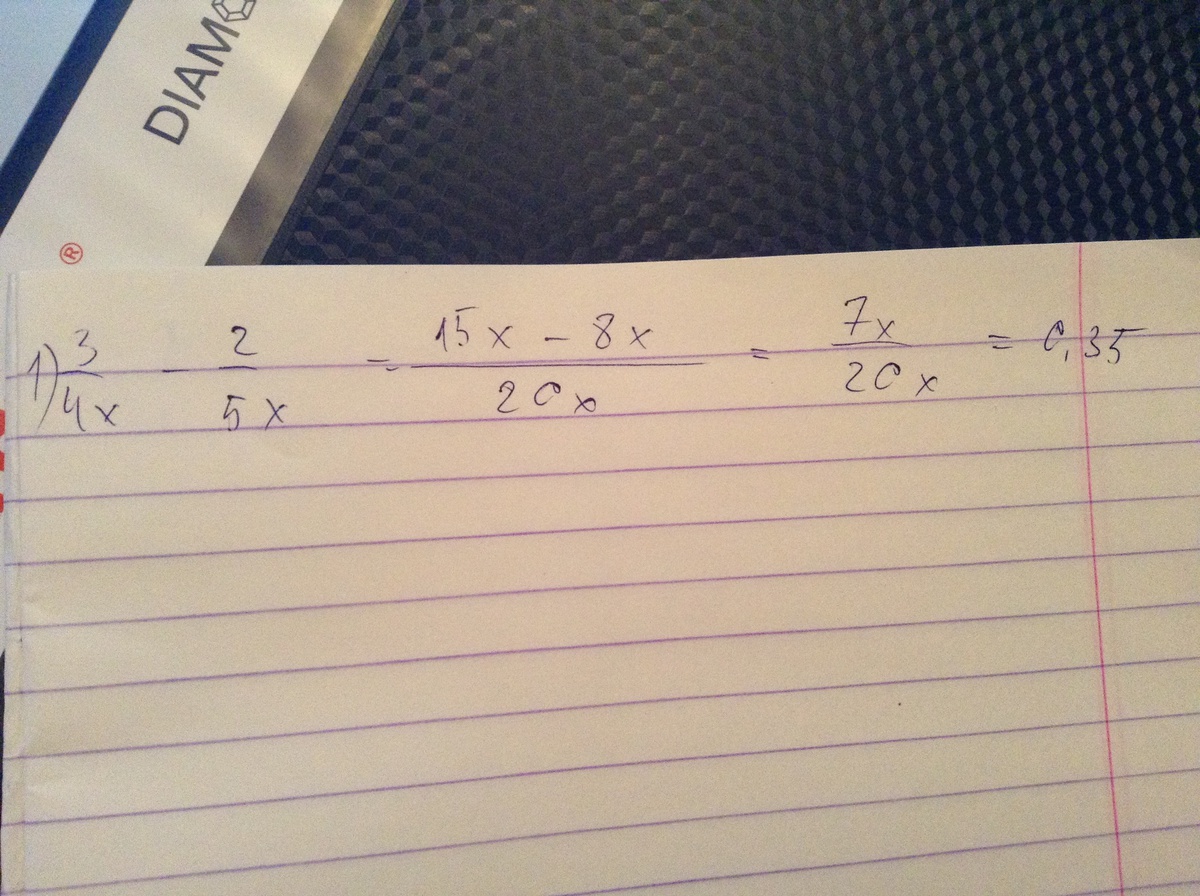 DIAMO
®
1) 3/4x - 2/5x = 15x - 8x/20x = 7x/20x = 0,35